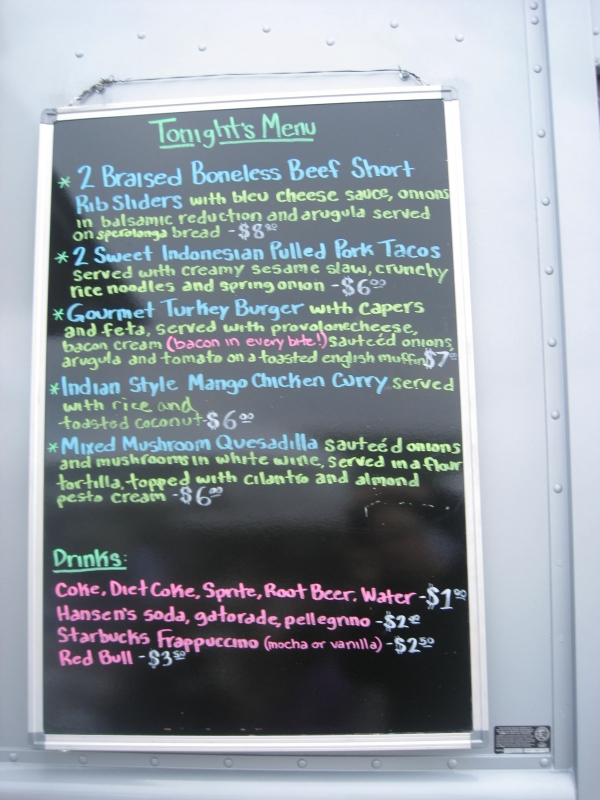 Tonight's Menu
* 2 Braised Boneless Beef Short
Rib Sliders with bleu cheese sauce, onions
in balsamic reduction and arugula served
on speralanga bread - $8⁰⁰
* 2 Sweet Indonesian Pulled Pork Tacos
served with creamy sesame slaw, crunchy
rice noodles and spring onion - $6⁰⁰
* Gourmet Turkey Burger with capers
and feta, served with provolone cheese,
bacon cream (bacon in every bite!) sauteéd onions,
arugula and tomato on a toasted english muffin $7⁰⁰
* Indian Style Mango Chicken Curry served
with rice and
toasted coconut - $6⁰⁰
* Mixed Mushroom Quesadilla sauteéd onions
and mushrooms in white wine, served in a flour
tortilla, topped with cilantro and almond
pesto cream - $6⁰⁰
Drinks:
Coke, Diet Coke, Sprite, Root Beer, Water - $1⁰⁰
Hansen's soda, gatorade, pellegrino - $2⁰⁰
Starbucks Frappuccino (mocha or vanilla) - $2⁵⁰
Red Bull - $3⁵⁰